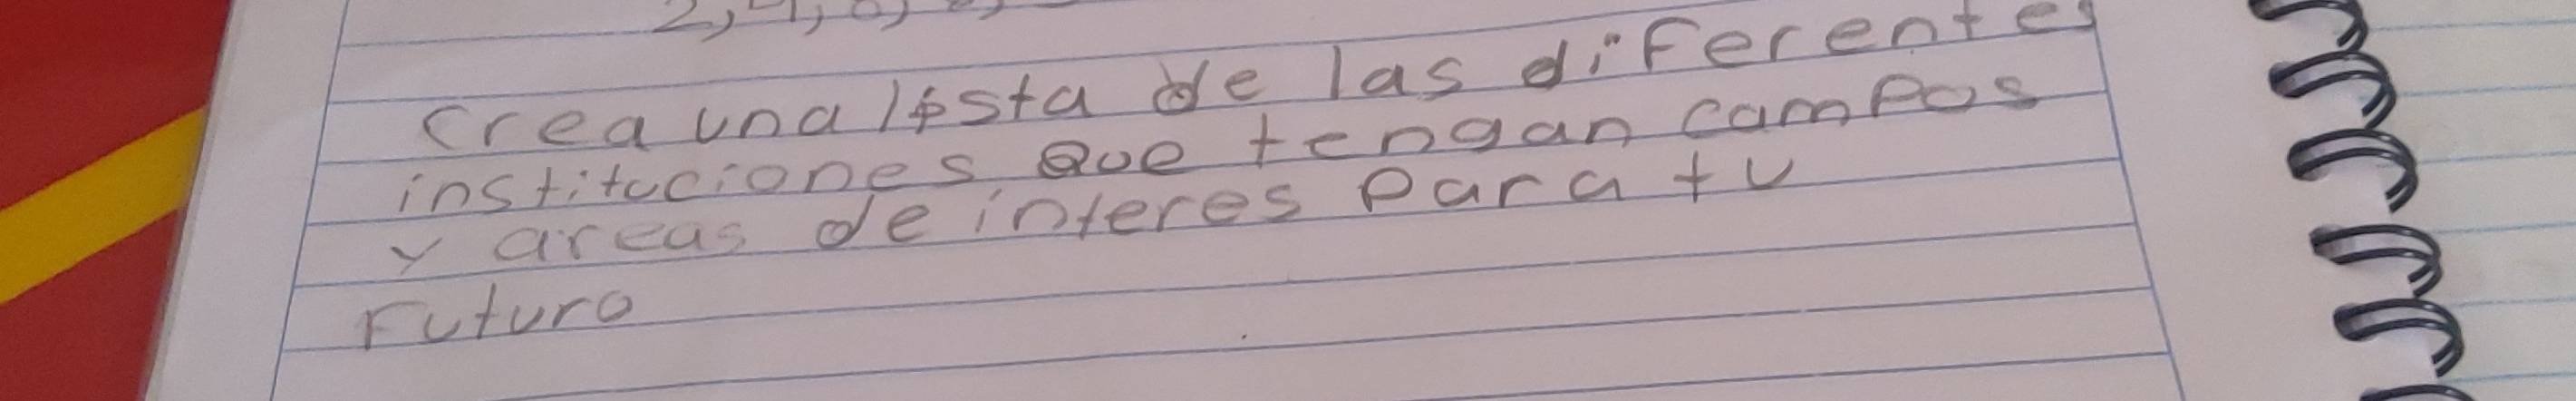 2, 4, 6, 8,
Crea una lista de las diferentes
instituciones Que tengan campos
y areas de interes Para tu
Futuro